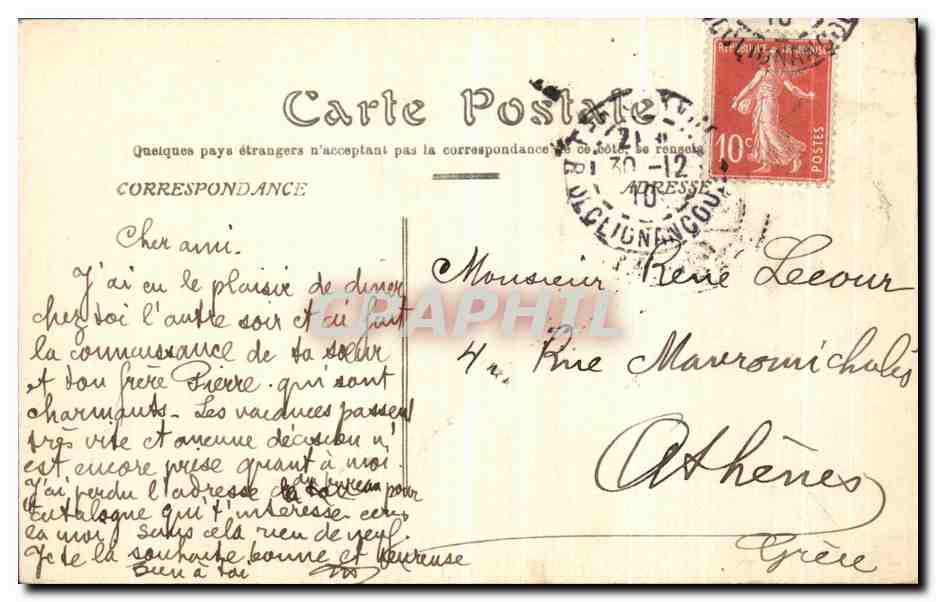 Carte Postale
Quelques pays étrangers n'acceptant pas la correspondance de ce côté, se renseig
CORRESPONDANCE
ADRESSE
REPUBLIQUE FRANÇAISE
10c
POSTES
30 -12
10
R. DE CLIGNANCOURT
CLIGNANCOU
Cher ami.
J'ai eu le plaisir de diner
chez toi l'autre soir et ai fait
la connaissance de ta sœur
et ton frère Pierre qui sont
charmants - Les vacances passent
très vite et aucune décision n'
est encore prise quant à moi.
J'ai perdu l'adresse du bureau pour
catalogue qui t'intéresse
la moi, sans cela rien de neuf.
Je te la souhaite bonne et heureuse
Bien à toi
Monsieur René Lecour
4 Rue Mavromichalis
Athènes
Grèce
CPAPHIL